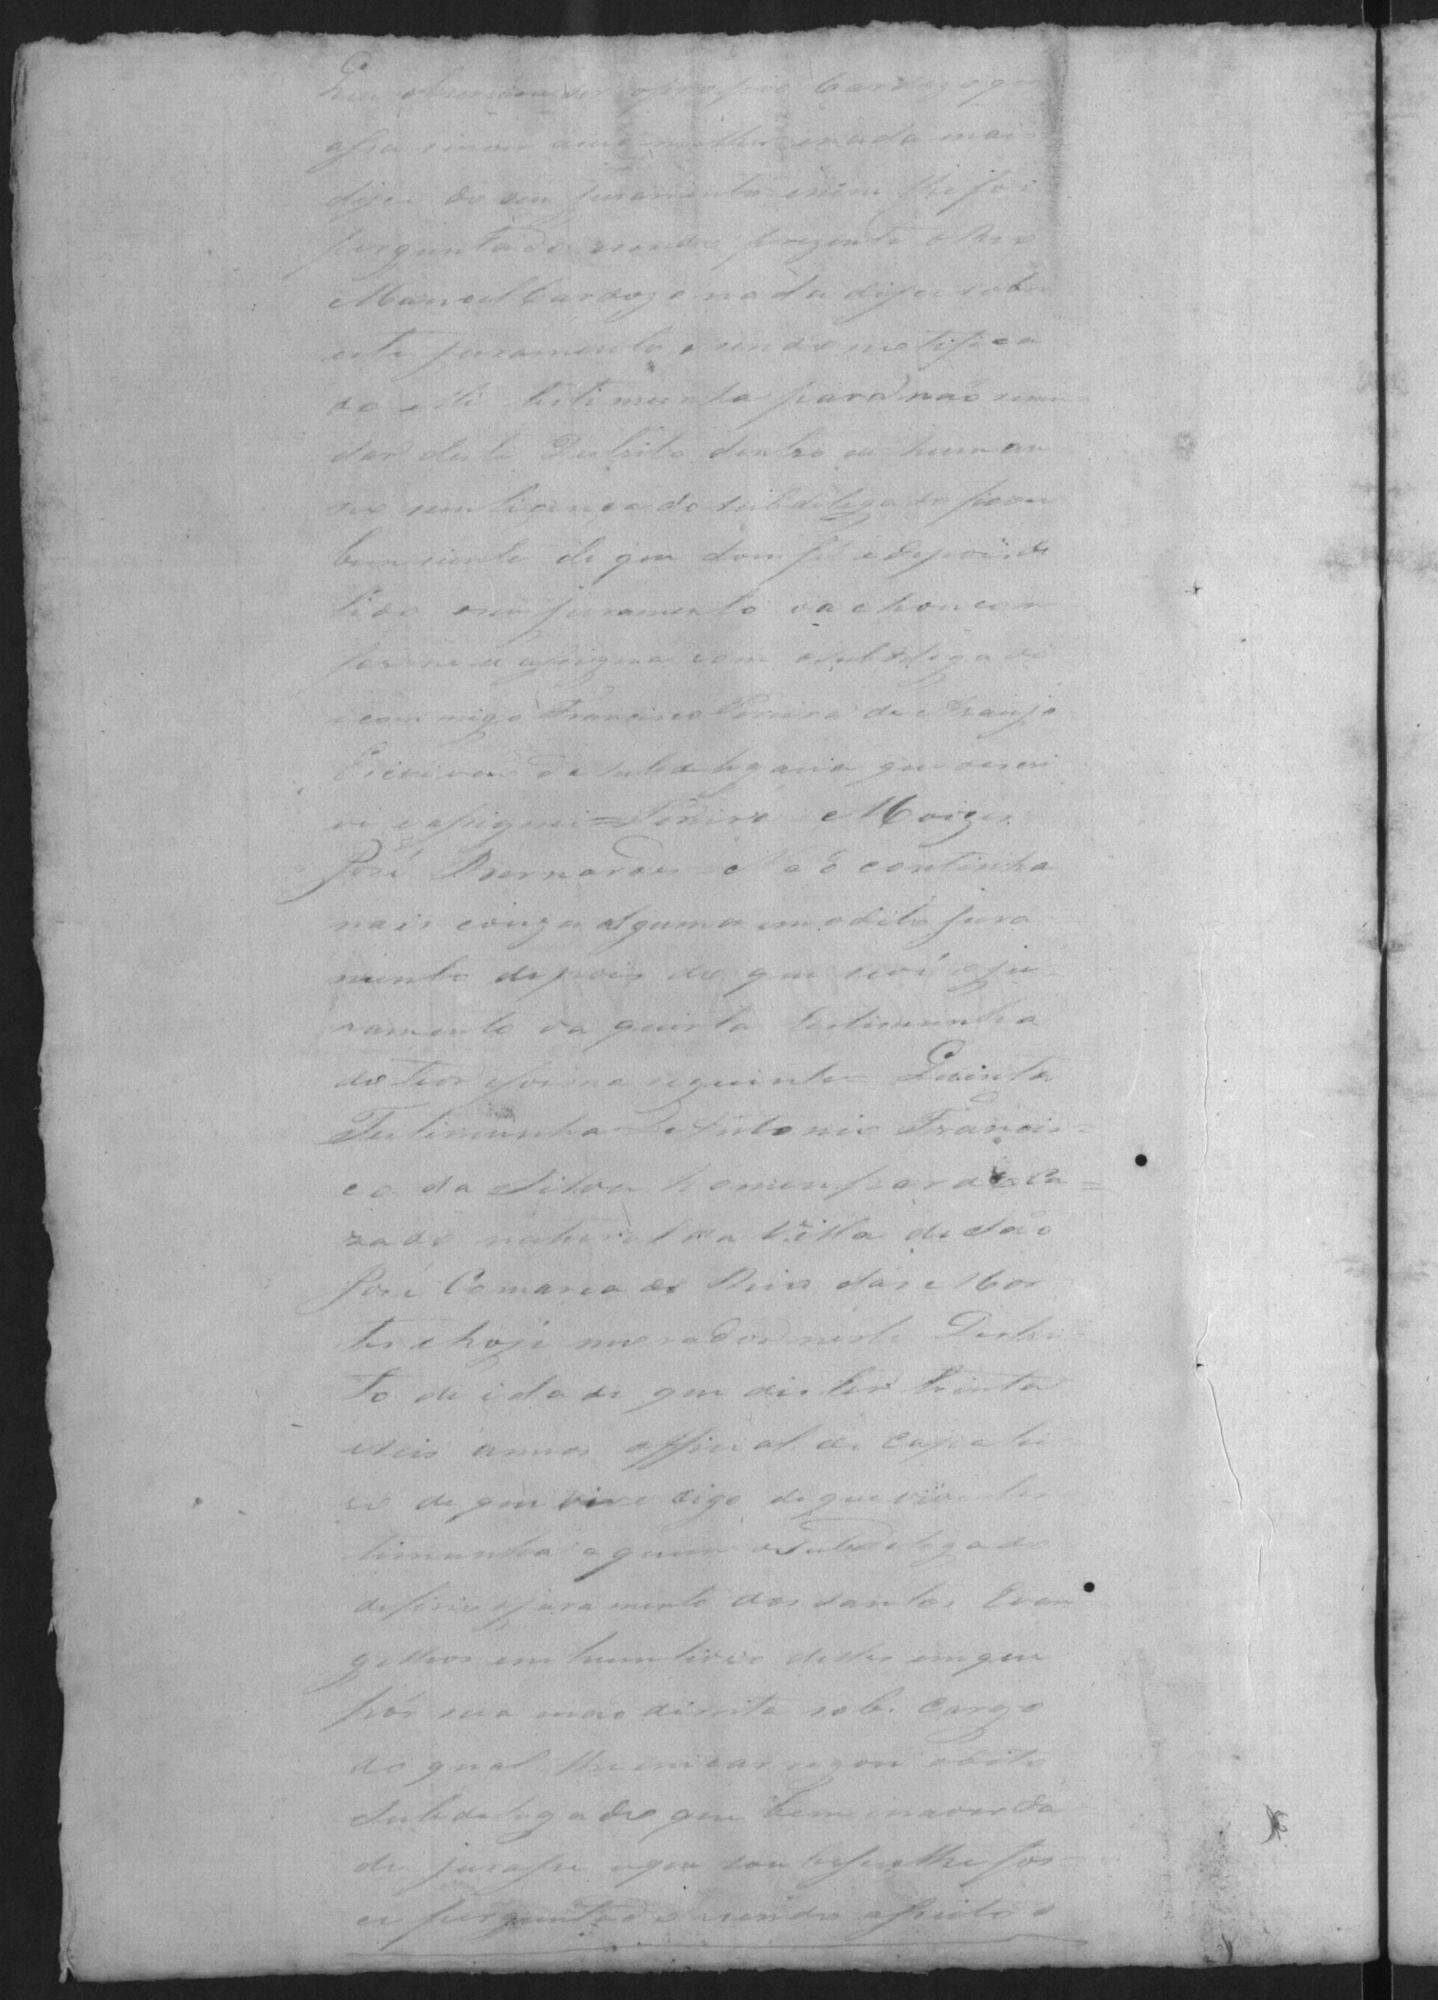 proprio Cardozo que
nada mais
disse do seu juramento e nem lhe foi
perguntado e sendo prezente o Reo
Manoel Cardozo nada disse sobre
este juramento e sendo notifica
do esta testimunha para não se mu=
dar deste Destrito dentro de hum an
no sem licença do Subdelegado ficou
bem siente de que dou fé e depois de
lido o seu juramento o achou con
forme e assigna com o Subdelegado
e commigo Francisco Pereira de Araujo
Escrivão da Subdelegacia que o escri
vi e assignei = Moizes
José Bernardes Não continha
mais couza alguma em o dito jura
mento depois do que se vê o ju-
ramento da quinta testimunha
do teor e forma seguinte = Quinta
Testimunha Antonio Francis=
co da Silva homem pardo Ca=
zado natural da Villa de São
José Comarca do Rio das Mor
tes e hoje morador neste Destri
to de idade que dis ter trinta
e seis annos official de Çapatei
ro de que vive digo de que vive tes
timunha a quem o Subdelegado
deferio o juramento dos Santos Evan
gelhos em hum livro delles em que
pôs sua mão direita sob. cargo
do qual lhe emcarregou o dito
Subdelegado que bem e na verda
de jurasse o que soubesse e lhe fos=
ce perguntado e sendo aseito o